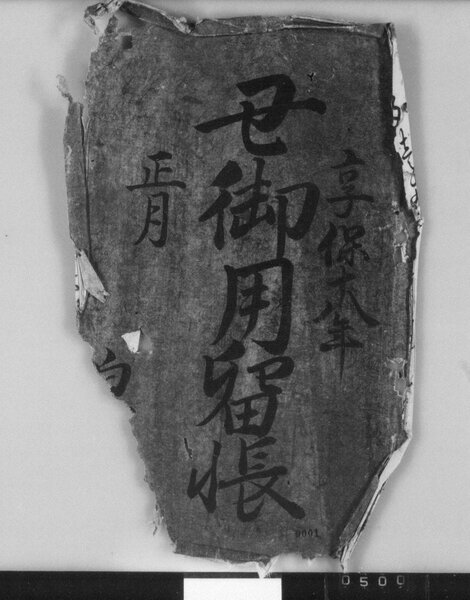 享保十八年
丑御用留帳
正月
0001
0500